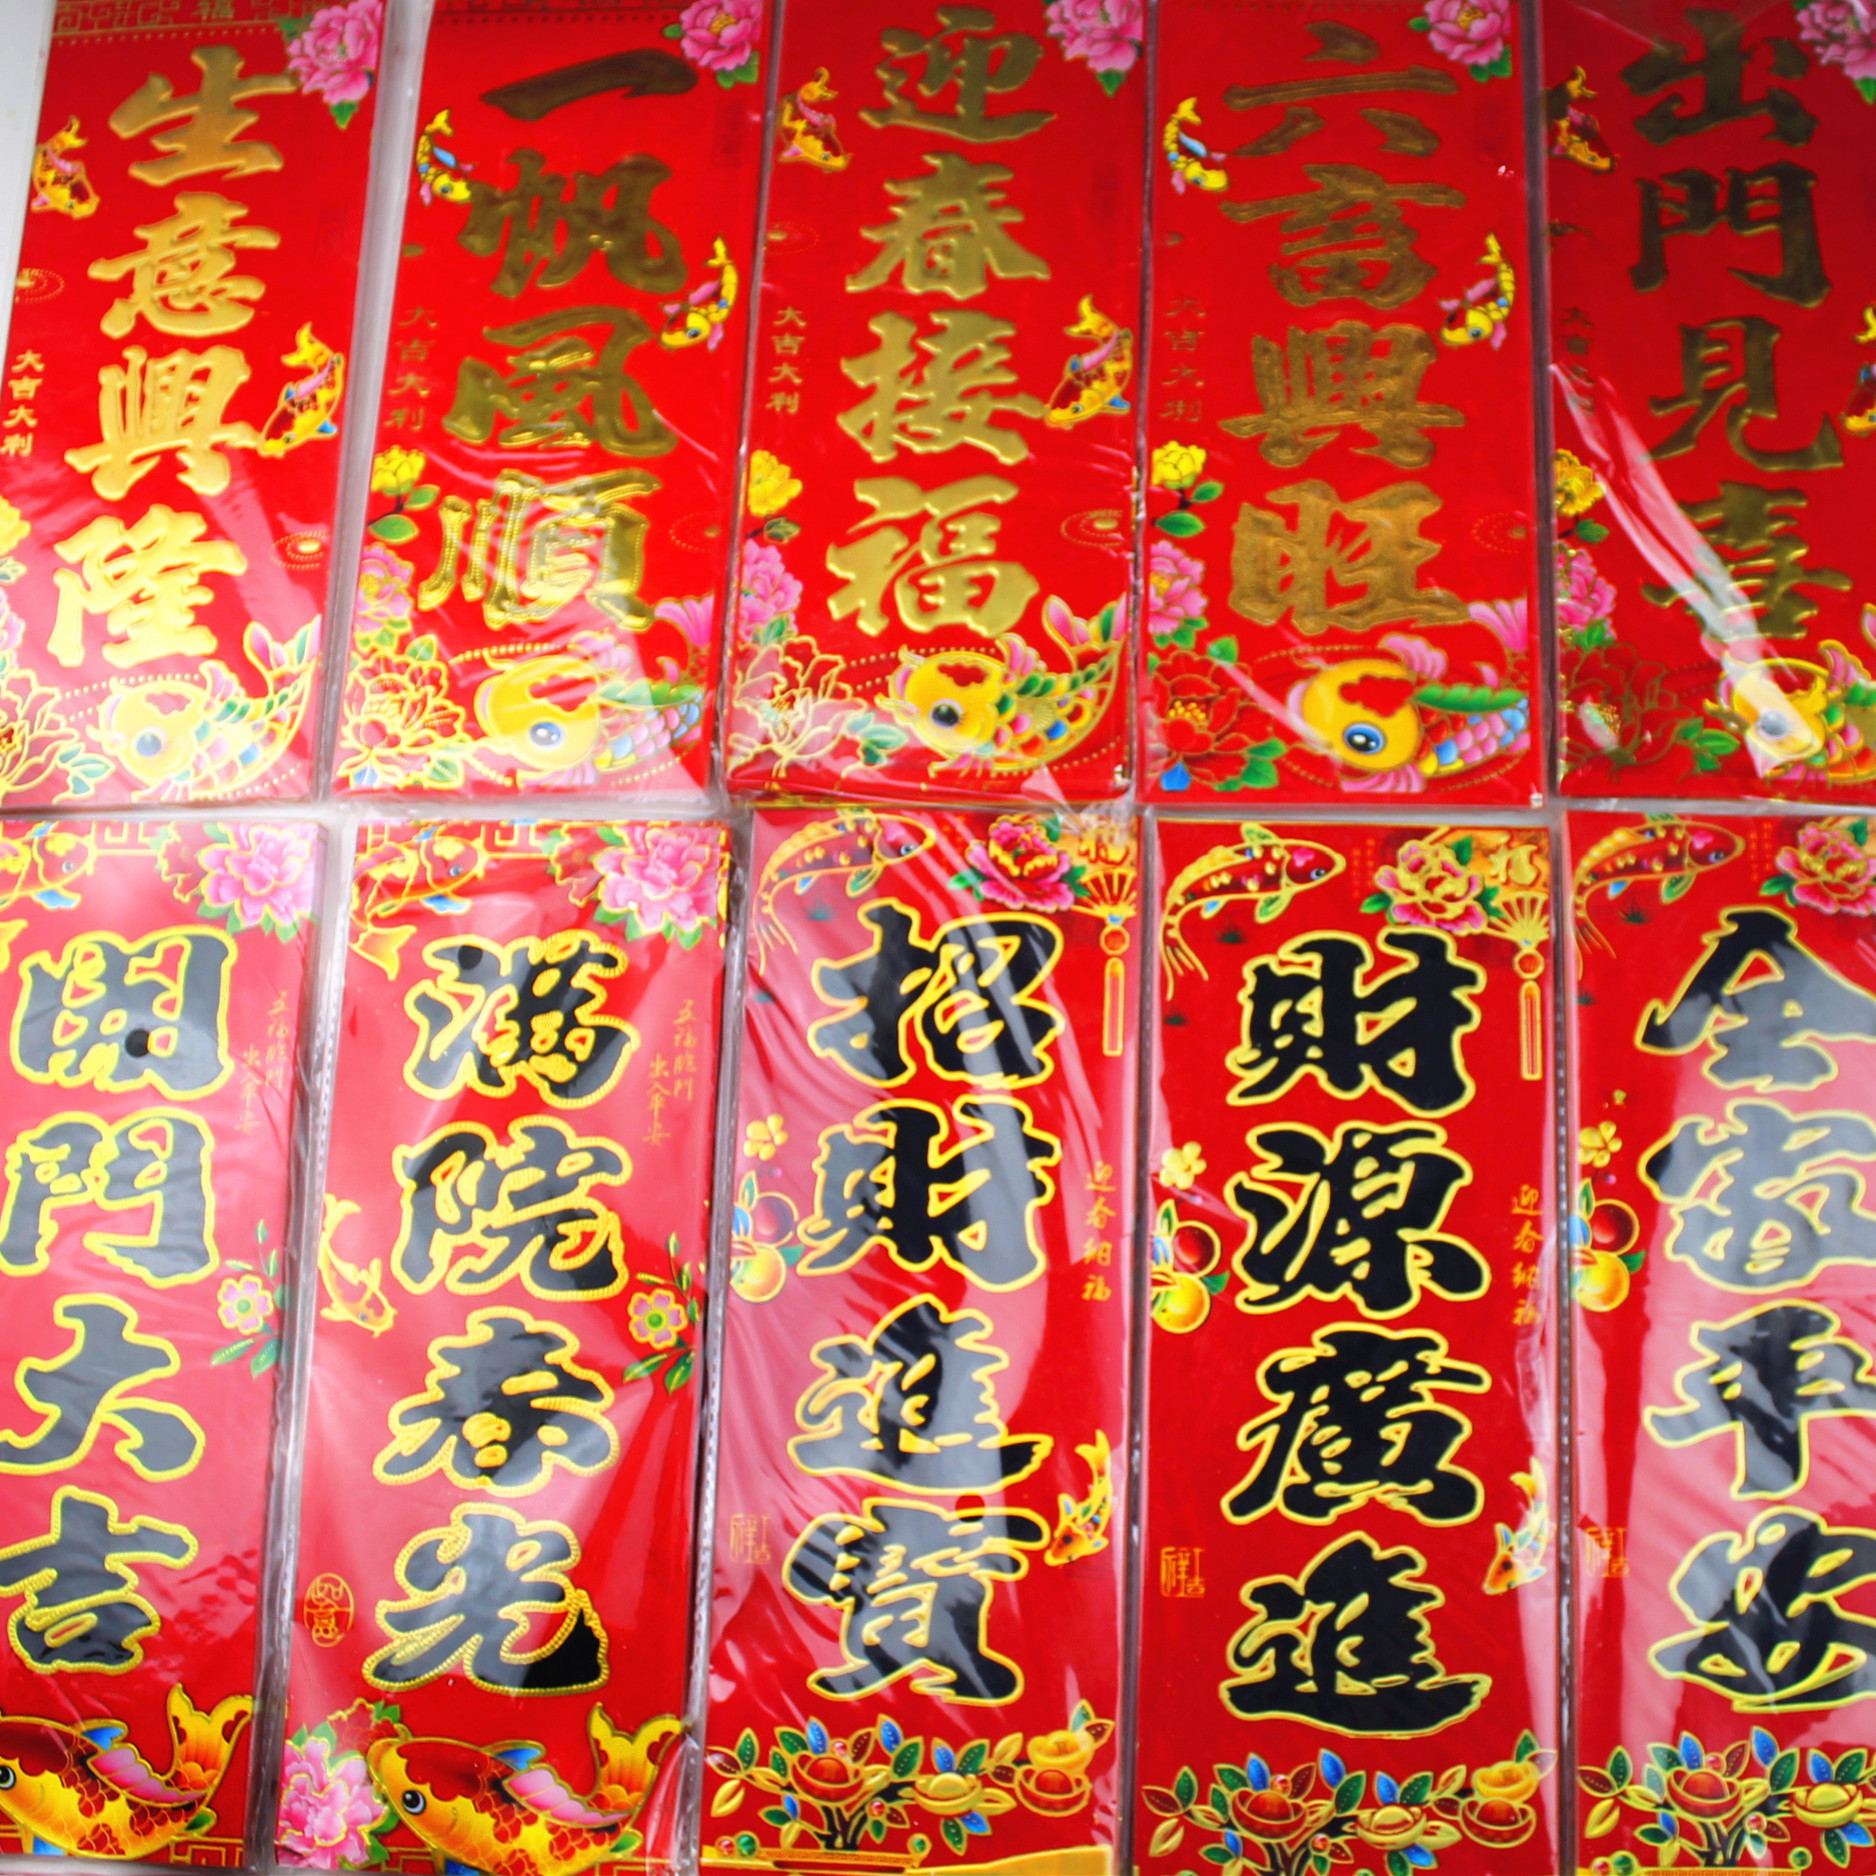 福
生意興隆
大吉大利
一帆風順
大吉大利
迎春接福
大吉大利
六畜興旺
大吉大利
出門見喜
開門大吉
五福臨門
出入平安
滿院春光
五福臨門
出入平安
如意
福
招財進寶
迎春納福
吉祥
福
財源廣進
迎春納福
吉祥
全家平安
吉祥